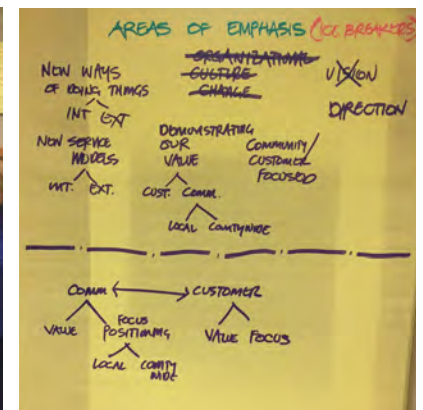 AREAS OF EMPHASIS (ICE BREAKERS)
NEW WAYS
OF DOING THINGS
INT EXT
ORGANIZATIONAL
CULTURE
CHANGE
VISION
DIRECTION
NEW SERVICE
MODELS
INT. EXT.
DEMONSTRATING
OUR
VALUE
CUST. COMM.
LOCAL COUNTYWIDE
COMMUNITY/
CUSTOMER
FOCUSED
COMM CUSTOMER
VALUE FOCUS
POSITIONING
LOCAL COUNTY
WIDE
VALUE FOCUS